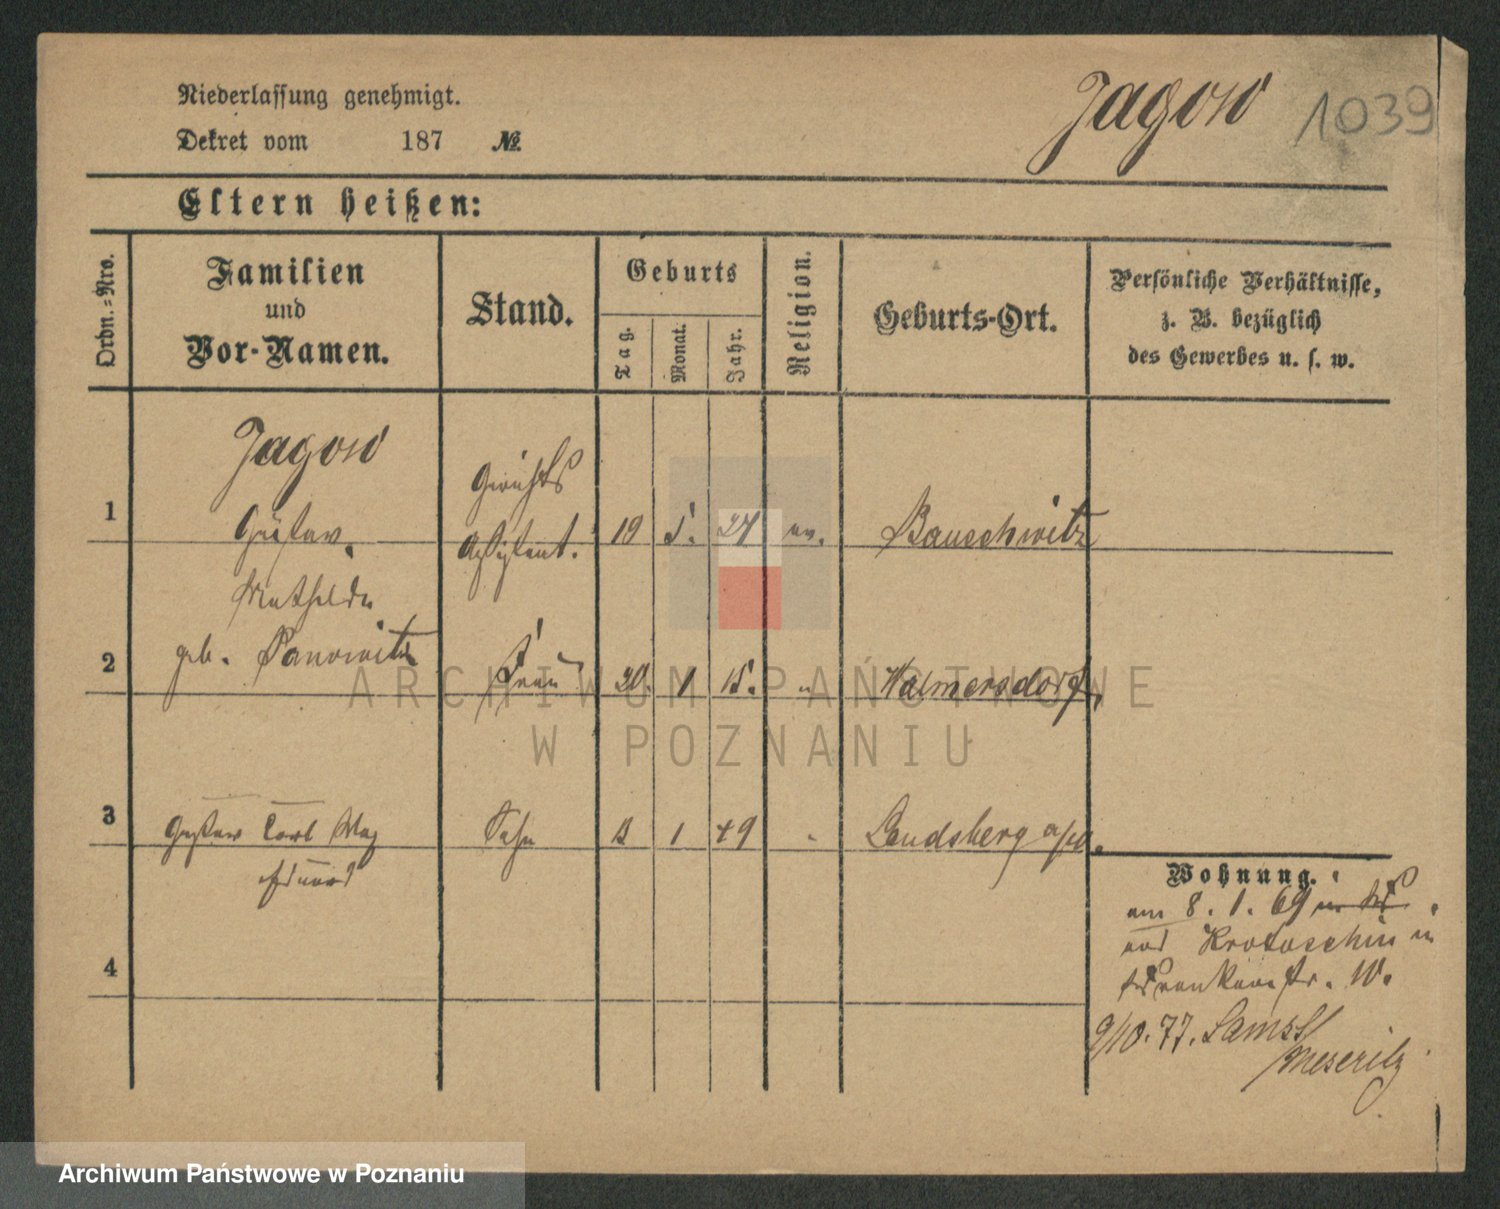 Niederlassung genehmigt.
Jagow 1039
Dekret vom 187 №.
Eltern heißen:
Ordn.=Nro.
Familien
und
Vor-Namen.
Stand.
Geburts
Tag.
Monat.
Jahr.
Religion.
Geburts-Ort.
Persönliche Verhältnisse,
z. B. bezüglich
des Gewerbes u. s. w.
Jagow
1 Gustav. Gerichts
Assistent. 19 5. 24 ev. Bauschwitz
Mathilde
2 geb. Panowitz Frau 30. 1 15. " Walmersdorf
3 Gustav Carl Max Sohn 1 49 " Landsberg a/w.
Eduard
4
Wohnung.
am 8. 1. 69
Krotoschin in
str. 10.
9/10. 77.
Meseritz
ARCHIWUM PAŃSTWOWE
W POZNANIU
Archiwum Państwowe w Poznaniu